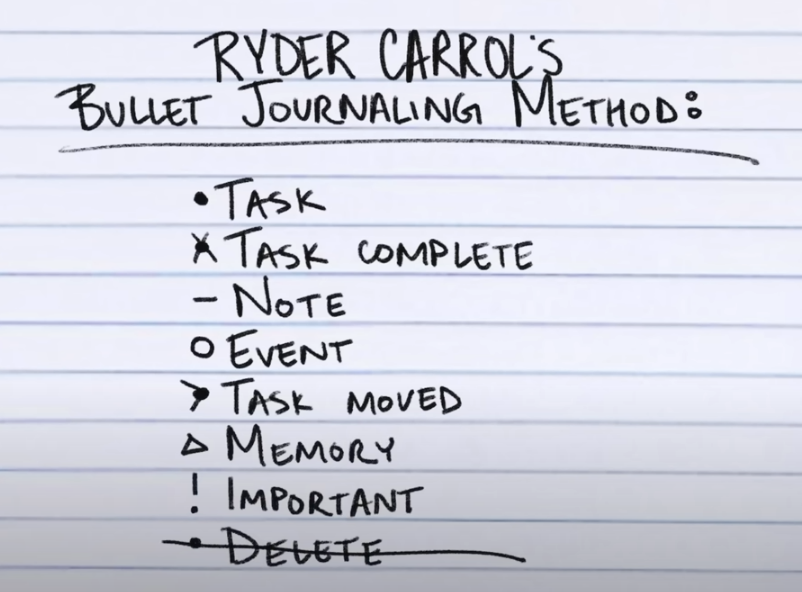 RYDER CARROL'S
BULLET JOURNALING METHOD:
• TASK
X TASK COMPLETE
– NOTE
O EVENT
> TASK MOVED
△ MEMORY
! IMPORTANT
• DELETE